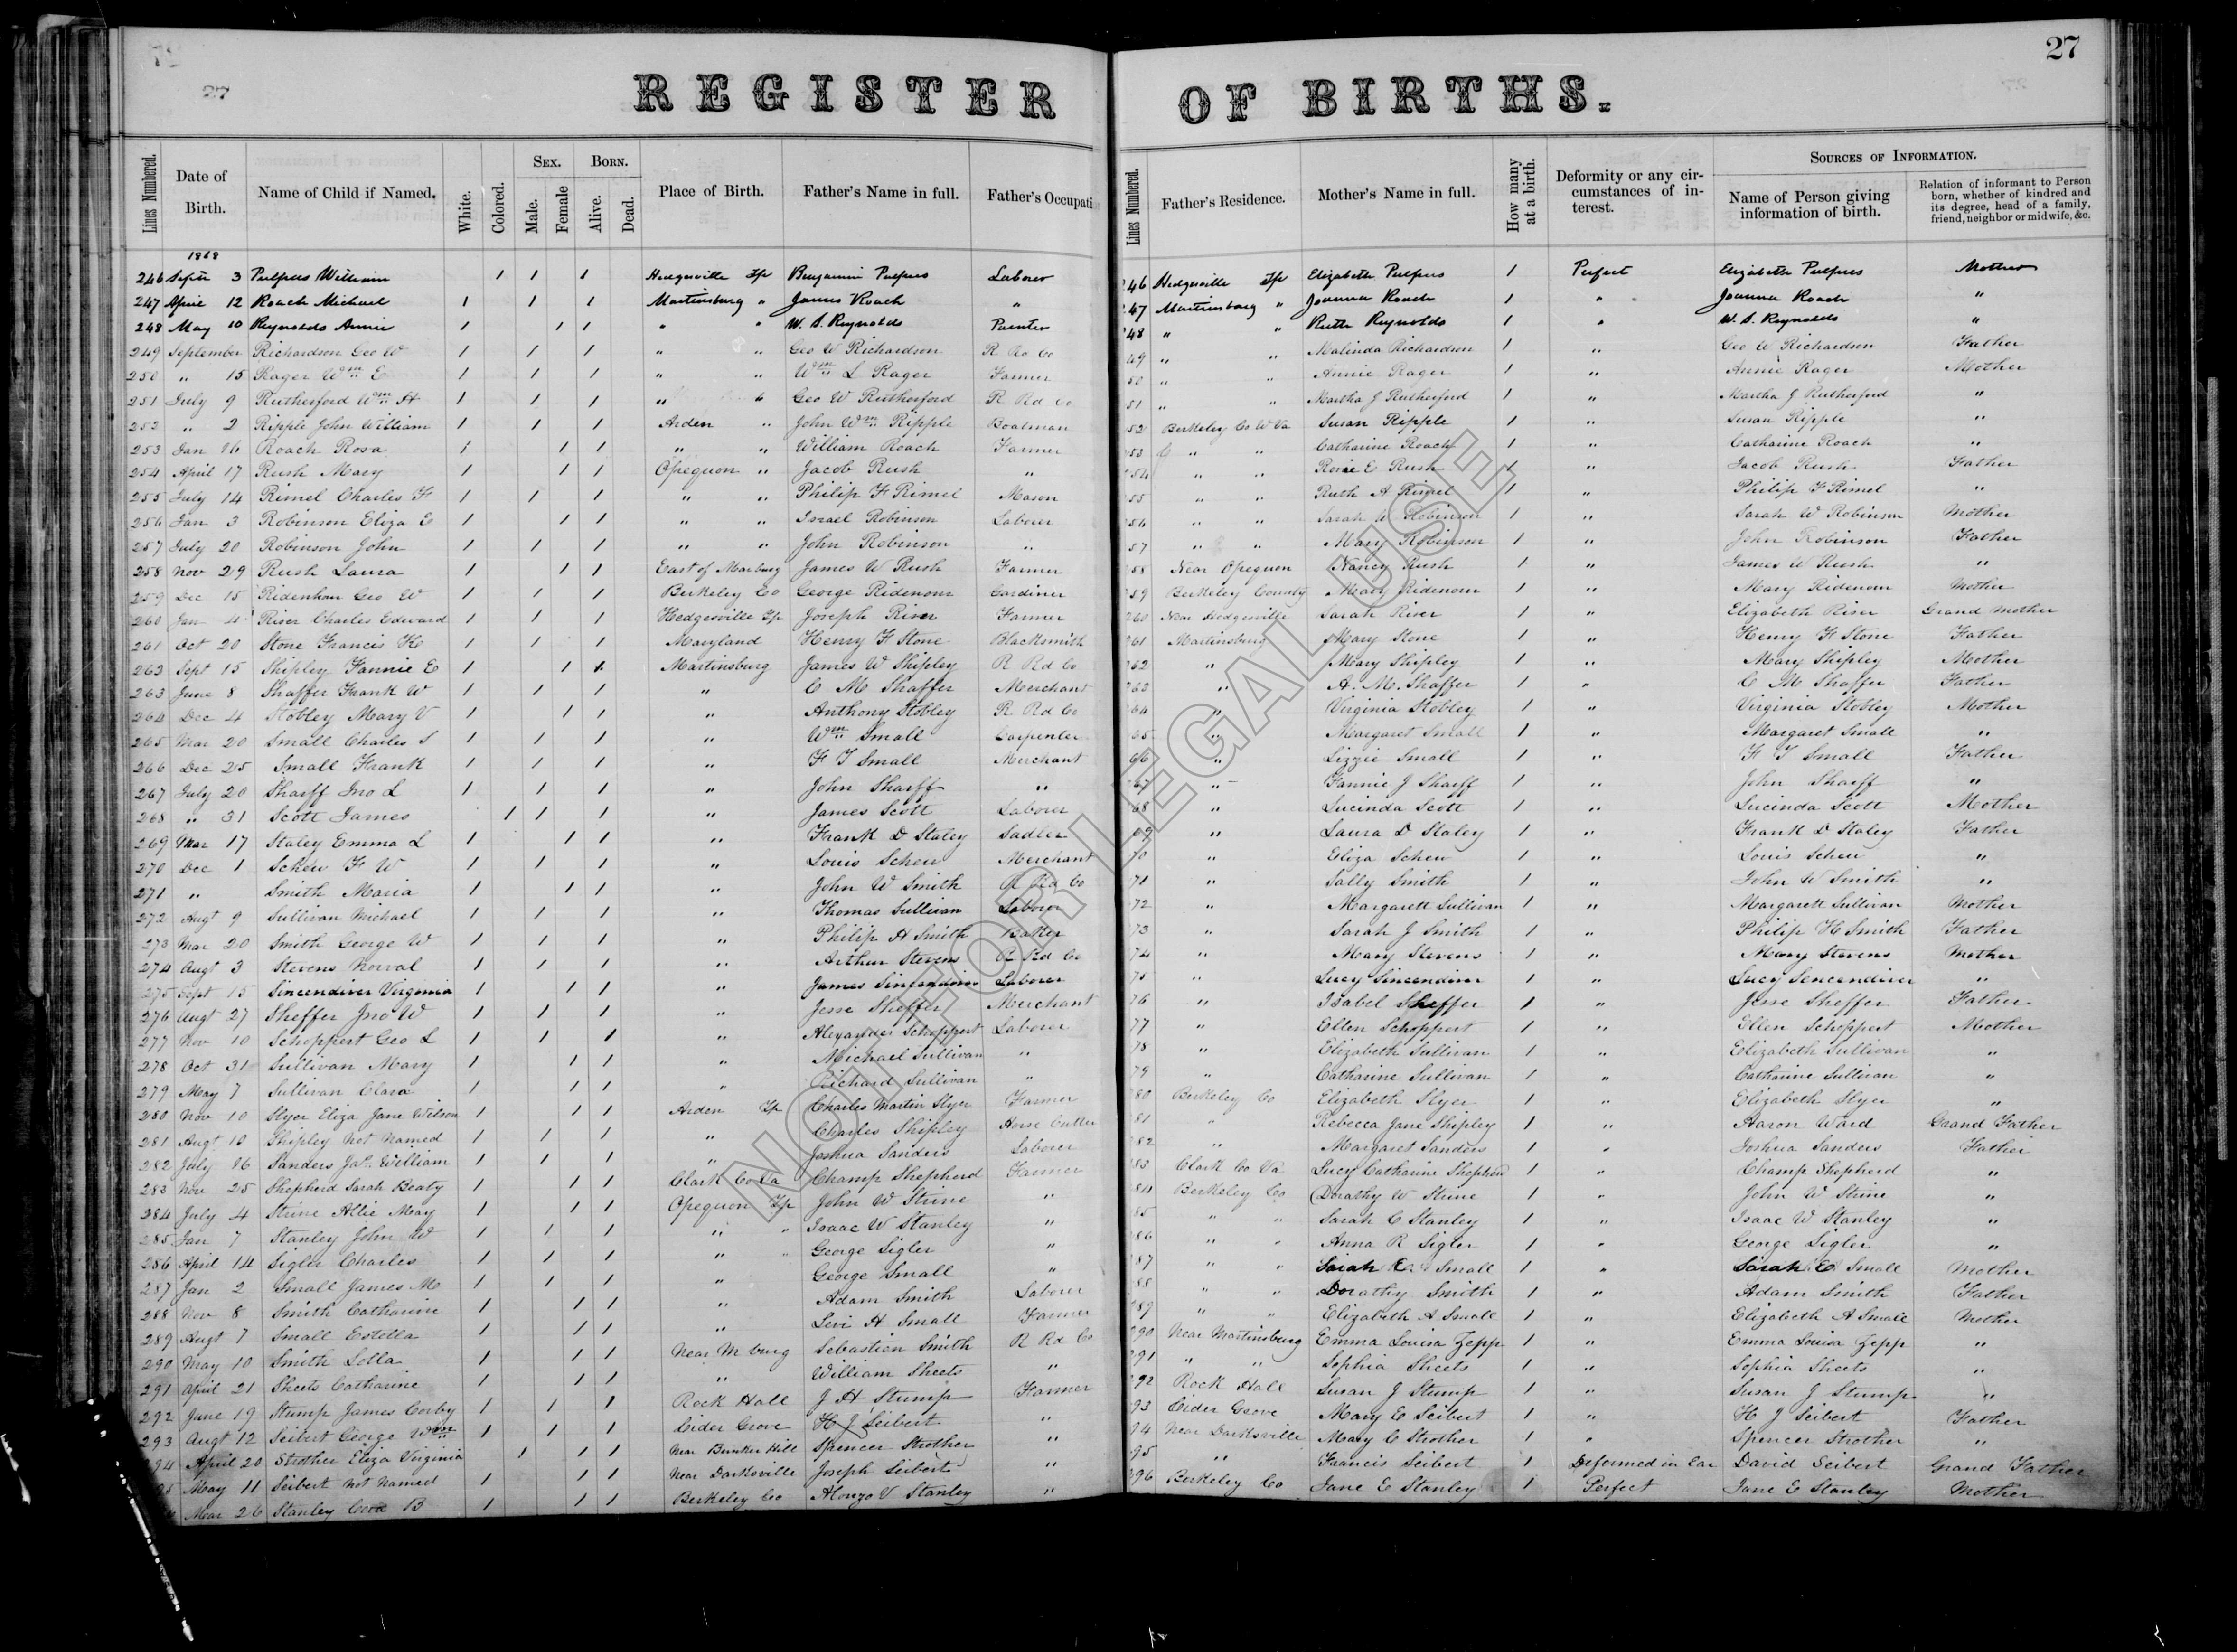 27
27
REGISTER OF BIRTHS.
Lines Numbered. Date of Birth. Name of Child if Named. White. Colored. Sex. Male. Female Born. Alive. Dead. Place of Birth. Father's Name in full. Father's Occupati Lines Numbered. Father's Residence. Mother's Name in full. How many at a birth. Deformity or any circumstances of interest. Sources of Information. Name of Person giving information of birth. Relation of informant to Person born, whether of kindred and its degree, head of a family, friend, neighbor or midwife, &c.
1868
246 Sept 3 Pulpus William 1 1 1 Hedgesville Tp Benjamin Pulpus Laborer 246 Hedgesville Tp Elizabeth Pulpus 1 Perfect Elizabeth Pulpus Mother
247 April 12 Roach Michael 1 1 1 Martinsburg " James Roach " 47 Martinsburg " Joanna Roach 1 " Joanna Roach "
248 May 10 Reynolds Annie 1 1 1 " " W. S. Reynolds Painter 48 " " Ruth Reynolds 1 " W. S. Reynolds "
249 September Richardson Geo W 1 1 1 " " Geo W Richardson R Rd Co 49 " " Malinda Richardson 1 " Geo W Richardson Father
250 " 15 Rager Wm E 1 1 1 " " Wm L Rager Farmer 50 " " Annie Rager 1 " Annie Rager Mother
251 July 9 Rutherford Wm H 1 1 1 " " Geo W Rutherford R Rd Co 51 " " Martha J Rutherford 1 " Martha J Rutherford "
252 " 2 Ripple John William 1 1 1 Arden " John Wm Ripple Boatman 52 Berkeley Co W Va Susan Ripple 1 " Susan Ripple "
253 Jan 16 Roach Rosa 1 1 1 " " William Roach Farmer 53 " " Catharine Roach 1 " Catharine Roach "
254 April 17 Rush Mary 1 1 1 Opequon " Jacob Rush " 254 " " Rosie E Rush 1 " Jacob Rush Father
255 July 14 Rimel Charles F 1 1 1 " " Philip F Rimel Mason 55 " " Ruth A Rimel 1 " Philip F Rimel "
256 Jan 3 Robinson Eliza E 1 1 1 " " Israel Robinson Laborer 256 " " Sarah W Robinson 1 " Sarah W Robinson Mother
257 July 20 Robinson John 1 1 1 " " John Robinson " 57 " " Mary Robinson 1 " John Robinson Father
258 Nov 29 Rush Laura 1 1 1 East of Marburg James W Rush Farmer 258 Near Opequon Nancy Rush 1 " James W Rush "
259 Dec 15 Ridenhour Geo W 1 1 1 Berkeley Co George Ridenour Gardiner 259 Berkeley County Mary Ridenour 1 " Mary Ridenour Mother
260 Jan 4 Riser Charles Edward 1 1 1 Hedgesville Tp Joseph Riser Farmer 260 Near Hedgesville Sarah Riser 1 " Elizabeth Riser Grand Mother
261 Oct 20 Stone Francis H 1 1 1 Maryland Henry F Stone Blacksmith 261 Martinsburg Mary Stone 1 " Henry F Stone Father
262 Sept 15 Shipley Fannie E 1 1 1 Martinsburg James W Shipley R Rd Co 262 " Mary Shipley 1 " Mary Shipley Mother
263 June 8 Shaffer Frank W 1 1 1 " C M Shaffer Merchant 263 " A. M. Shaffer 1 " C M Shaffer Father
264 Dec 4 Stobley Mary V 1 1 1 " Anthony Stobley R Rd Co 264 " Virginia Stobley 1 " Virginia Stobley Mother
265 Mar 20 Small Charles S 1 1 1 " Wm Small Carpenter 65 " Margaret Small 1 " Margaret Small "
266 Dec 25 Small Frank 1 1 1 " F T Small Merchant 66 " Lizzie Small 1 " F T Small Father
267 July 20 Sharff Jno L 1 1 1 " John Sharff " 267 " Fannie J Sharff 1 " John Sharff "
268 " 31 Scott James 1 1 1 " James Scott Laborer 68 " Lucinda Scott 1 " Lucinda Scott Mother
269 Mar 17 Staley Emma L 1 1 1 " Frank D Staley Sadler 69 " Laura D Staley 1 " Frank D Staley Father
270 Dec 1 Scheu F W 1 1 1 " Louis Scheu Merchant 70 " Eliza Scheu 1 " Louis Scheu "
271 " Smith Maria 1 1 1 " John W Smith R Rd Co 71 " Sally Smith 1 " John W Smith "
272 Augt 9 Sullivan Michael 1 1 1 " Thomas Sullivan Laborer 72 " Margarett Sullivan 1 " Margarett Sullivan Mother
273 Mar 20 Smith George W 1 1 1 " Philip H Smith Baker 73 " Sarah J Smith 1 " Philip H Smith Father
274 Augt 3 Stevens Norval 1 1 1 " Arthur Stevens R Rd Co 74 " Mary Stevens 1 " Mary Stevens Mother
275 Sept 15 Sincendiver Virginia 1 1 1 " James Sincendiver Laborer 75 " Lucy Sincendiver 1 " Lucy Sencendiver "
276 Augt 27 Sheffer Jno W 1 1 1 " Jesse Sheffer Merchant 76 " Isabel Sheffer 1 " Jesse Sheffer Father
277 Nov 10 Schoppert Geo L 1 1 1 " Alexander Schoppert Laborer 77 " Ellen Schoppert 1 " Ellen Schoppert Mother
278 Oct 31 Sullivan Mary 1 1 1 " Michael Sullivan " 78 " Elizabeth Sullivan 1 " Elizabeth Sullivan "
279 May 7 Sullivan Clara 1 1 1 " Richard Sullivan " 79 " Catharine Sullivan 1 " Catharine Sullivan "
280 Nov 10 Slyer Eliza Jane Wilson 1 1 1 Arden Tp Charles Martin Slyer Farmer 80 Berkeley Co Elizabeth Slyer 1 " Elizabeth Slyer "
281 Augt 10 Shipley Not Named 1 1 1 " Charles Shipley Horse Cutter 81 " Rebecca Jane Shipley 1 " Aaron Ward Grand Father
282 July 16 Sanders Jas. William 1 1 1 " Joshua Sanders Laborer 282 " Margaret Sanders 1 " Joshua Sanders Father
283 Nov 25 Shepherd Sarah Beaty 1 1 1 Clark Co Va Champ Shepherd Farmer 283 Clark Co Va Lucy Catharine Shepherd 1 " Champ Shepherd "
284 July 4 Strine Allie May 1 1 1 Opequon Tp John W Strine " 84 Berkeley Co Dorathy W Strine 1 " John W Strine "
285 Jan 7 Stanley John W 1 1 1 " " Isaac W Stanley " 85 " " Sarah C Stanley 1 " Isaac W Stanley "
286 April 14 Sigler Charles 1 1 1 " " George Sigler " 286 " " Anna R Sigler 1 " George Sigler "
287 Jan 2 Small James M 1 1 1 " George Small " 287 " " Sarah E Small 1 " Sarah E Small Mother
288 Nov 8 Smith Catharine 1 1 1 " Adam Smith Laborer 288 " " Dorathy Smith 1 " Adam Smith Father
289 Augt 7 Small Estella 1 1 1 " Levi H Small Farmer 289 " " Elizabeth A Small 1 " Elizabeth A Small Mother
290 May 10 Smith Lolla 1 1 1 Near M burg Sebastien Smith R Rd Co 290 Near Martinsburg Emma Louisa Zepp 1 " Emma Louisa Zepp "
291 April 21 Sheets Catharine 1 1 1 " William Sheets " 291 " " Sophia Sheets 1 " Sophia Sheets "
292 June 19 Stump James Corby 1 1 1 Rock Hall J H Stump Farmer 292 Rock Hall Susan J Stump 1 " Susan J Stump "
293 Augt 12 Seibert George Wm 1 1 1 Cider Grove H J Seibert " 93 Cider Grove Mary E Seibert 1 " H J Seibert Father
294 April 20 Strother Eliza Virginia 1 1 1 Near Bunker Hill Spencer Strother " 94 Near Darksville Mary C Strother 1 " Spencer Strother "
95 May 11 Seibert Not Named 1 1 1 Near Darksville Joseph Seibert " 95 " Francis Seibert 1 Deformed in Ear David Seibert Grand Father
Mar 26 Stanley B 1 1 1 Berkeley Co Alonzo V Stanley " 296 Berkeley Co Jane E Stanley 1 Perfect Jane E Stanley Mother
NOT FOR LEGAL USE